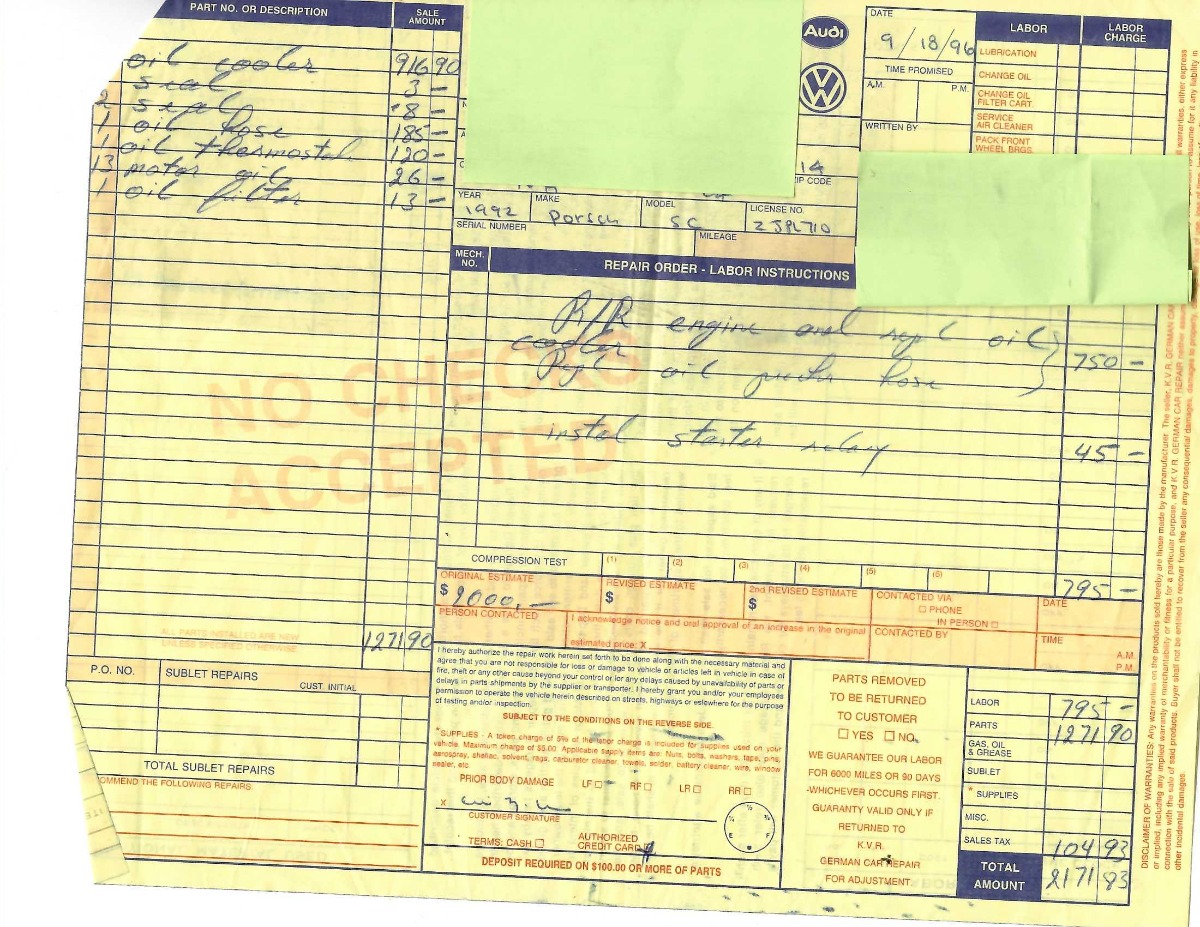 PART NO. OR DESCRIPTION SALE AMOUNT
oil cooler 916 90
seal 3 -
2 seal 8 -
1 oil hose 185 -
1 oil thermostat 120 -
13 motor oil 26 -
1 oil filter 13 -
NO CHECKS
ACCEPTED
ALL PARTS INSTALLED ARE NEW
UNLESS SPECIFIED OTHERWISE
1271 90
P.O. NO. SUBLET REPAIRS
CUST. INITIAL
TOTAL SUBLET REPAIRS
OMMEND THE FOLLOWING REPAIRS
Audi
DATE
9/18/96
TIME PROMISED
A.M. P.M.
WRITTEN BY
LABOR LABOR CHARGE
LUBRICATION
CHANGE OIL
CHANGE OIL
FILTER CART.
SERVICE
AIR CLEANER
PACK FRONT
WHEEL BRGS.
IP CODE
YEAR MAKE MODEL LICENSE NO.
1992 Porsch SC 2JPL710
SERIAL NUMBER MILEAGE
MECH. NO. REPAIR ORDER - LABOR INSTRUCTIONS
R/R engine and repl oil
cooler
Repl oil hose 750 -
instal starter relay 45 -
COMPRESSION TEST (1) (2) (3) (4) (5) (6)
795 -
ORIGINAL ESTIMATE REVISED ESTIMATE 2nd REVISED ESTIMATE CONTACTED VIA DATE
$ 2000,- $ $ PHONE
IN PERSON
PERSON CONTACTED I acknowledge notice and oral approval of an increase in the original
estimated price: X
CONTACTED BY TIME
A.M.
P.M.
I hereby authorize the repair work herein set forth to be done along with the necessary material and
agree that you are not responsible for loss or damage to vehicle or articles left in vehicle in case of
fire, theft or any other cause beyond your control or for any delays caused by unavailability of parts or
delays in parts shipments by the supplier or transporter. I hereby grant you and/or your employees
permission to operate the vehicle herein described on streets, highways or elsewhere for the purpose
of testing and/or inspection.
SUBJECT TO THE CONDITIONS ON THE REVERSE SIDE.
*SUPPLIES - A token charge of 5% of the labor charge is included for supplies used on your
vehicle. Maximum charge of $5.00. Applicable supply items are: Nuts, bolts, washers, tape, pins,
aerospray, shellac, solvent, rags, carburetor cleaner, towels, solder, battery cleaner, wire, window
sealer, etc.
PRIOR BODY DAMAGE LF RF LR RR
X
CUSTOMER SIGNATURE
½
¼ ¾
E F
TERMS: CASH AUTHORIZED
CREDIT CARD
DEPOSIT REQUIRED ON $100.00 OR MORE OF PARTS
PARTS REMOVED
TO BE RETURNED
TO CUSTOMER
YES NO
WE GUARANTEE OUR LABOR
FOR 6000 MILES OR 90 DAYS
-WHICHEVER OCCURS FIRST.
GUARANTY VALID ONLY IF
RETURNED TO
K.V.R.
GERMAN CAR REPAIR
FOR ADJUSTMENT.
LABOR 795 -
PARTS 1271 90
GAS, OIL
& GREASE
SUBLET
* SUPPLIES
MISC.
SALES TAX 104 93
TOTAL
AMOUNT 2171 83